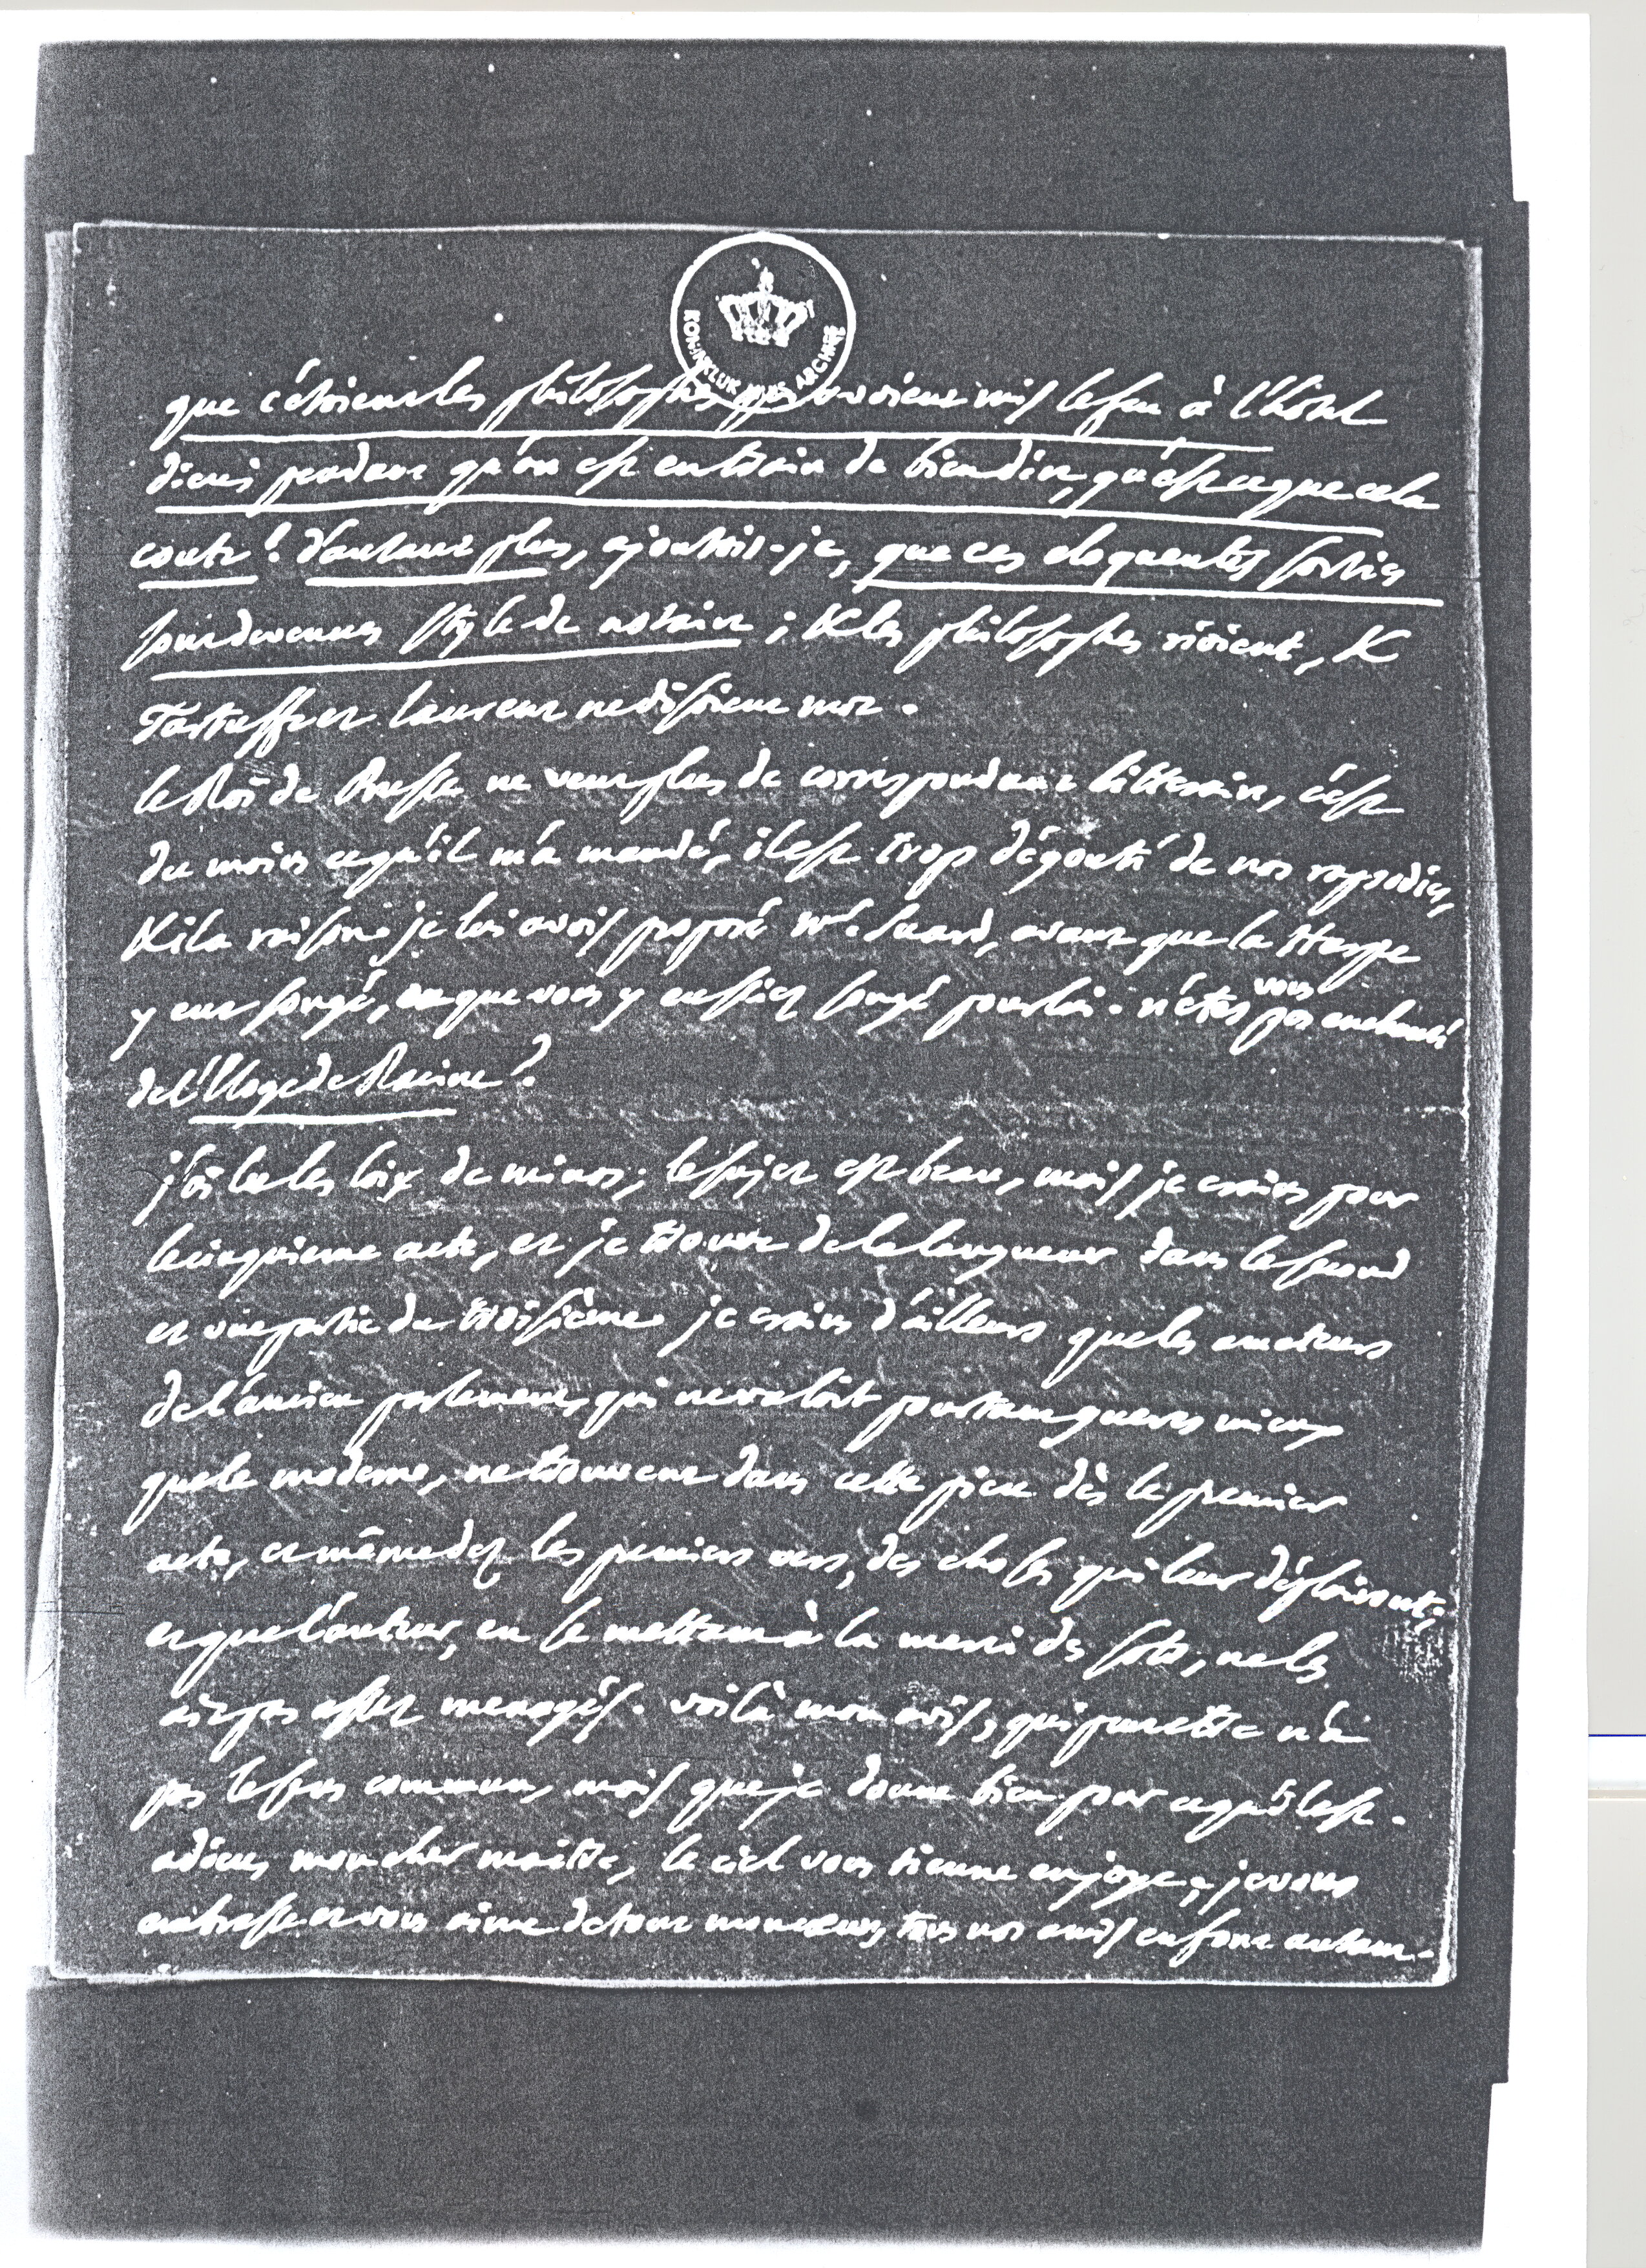 KONINKLIJK HUIS ARCHIEF
que c'étoient les philosophes qui avoient mis le feu à l'hôtel
dieu; pendant qu'on est en train de bien dire, qu'est ce que cela
coute! d'autant plus, ajoutois-je, que ces eloquentes sorties
sont devenues style de notaire; & les philosophes rioient, &
Tartuffe et Laurent ne disoient mot.
le Roi de Prusse ne veut plus de correspondance litteraire, c'est
du moins ce qu'il m'a mandé, il est trop dégouté de nos rapsodies,
& il a raison. je lui avois proposé Mr. Suard, avant que la Harpe
y eut songé, ou que vous y eussiez songé pour lui. n'êtes vous pas enchanté
de l'Eloge de Racine?
j'ai lu les loix de minos; le sujet est beau, mais je crains pour
le cinquieme acte, et je trouve de la langueur dans le second
et une partie du troisieme. je crains d'ailleurs que les amateurs
de l'ancien parlement, qui ne valoit pourtant gueres mieux
que le moderne, ne trouvent dans cette piece dès le premier
acte, et même dez les premiers vers, des choses qui leur déplairont;
et que l'auteur, en se mettant à la merci des sots, ne les
ait pas assez menagés. voilà mon avis, qui peutetre n'a
pas le sens commun, mais que je donne bien pour ce qu'il est.
adieu, mon cher maitre, le ciel vous tienne en joye; je vous
embrasse et vous aime de tout mon coeur, tous nos amis en font autant.